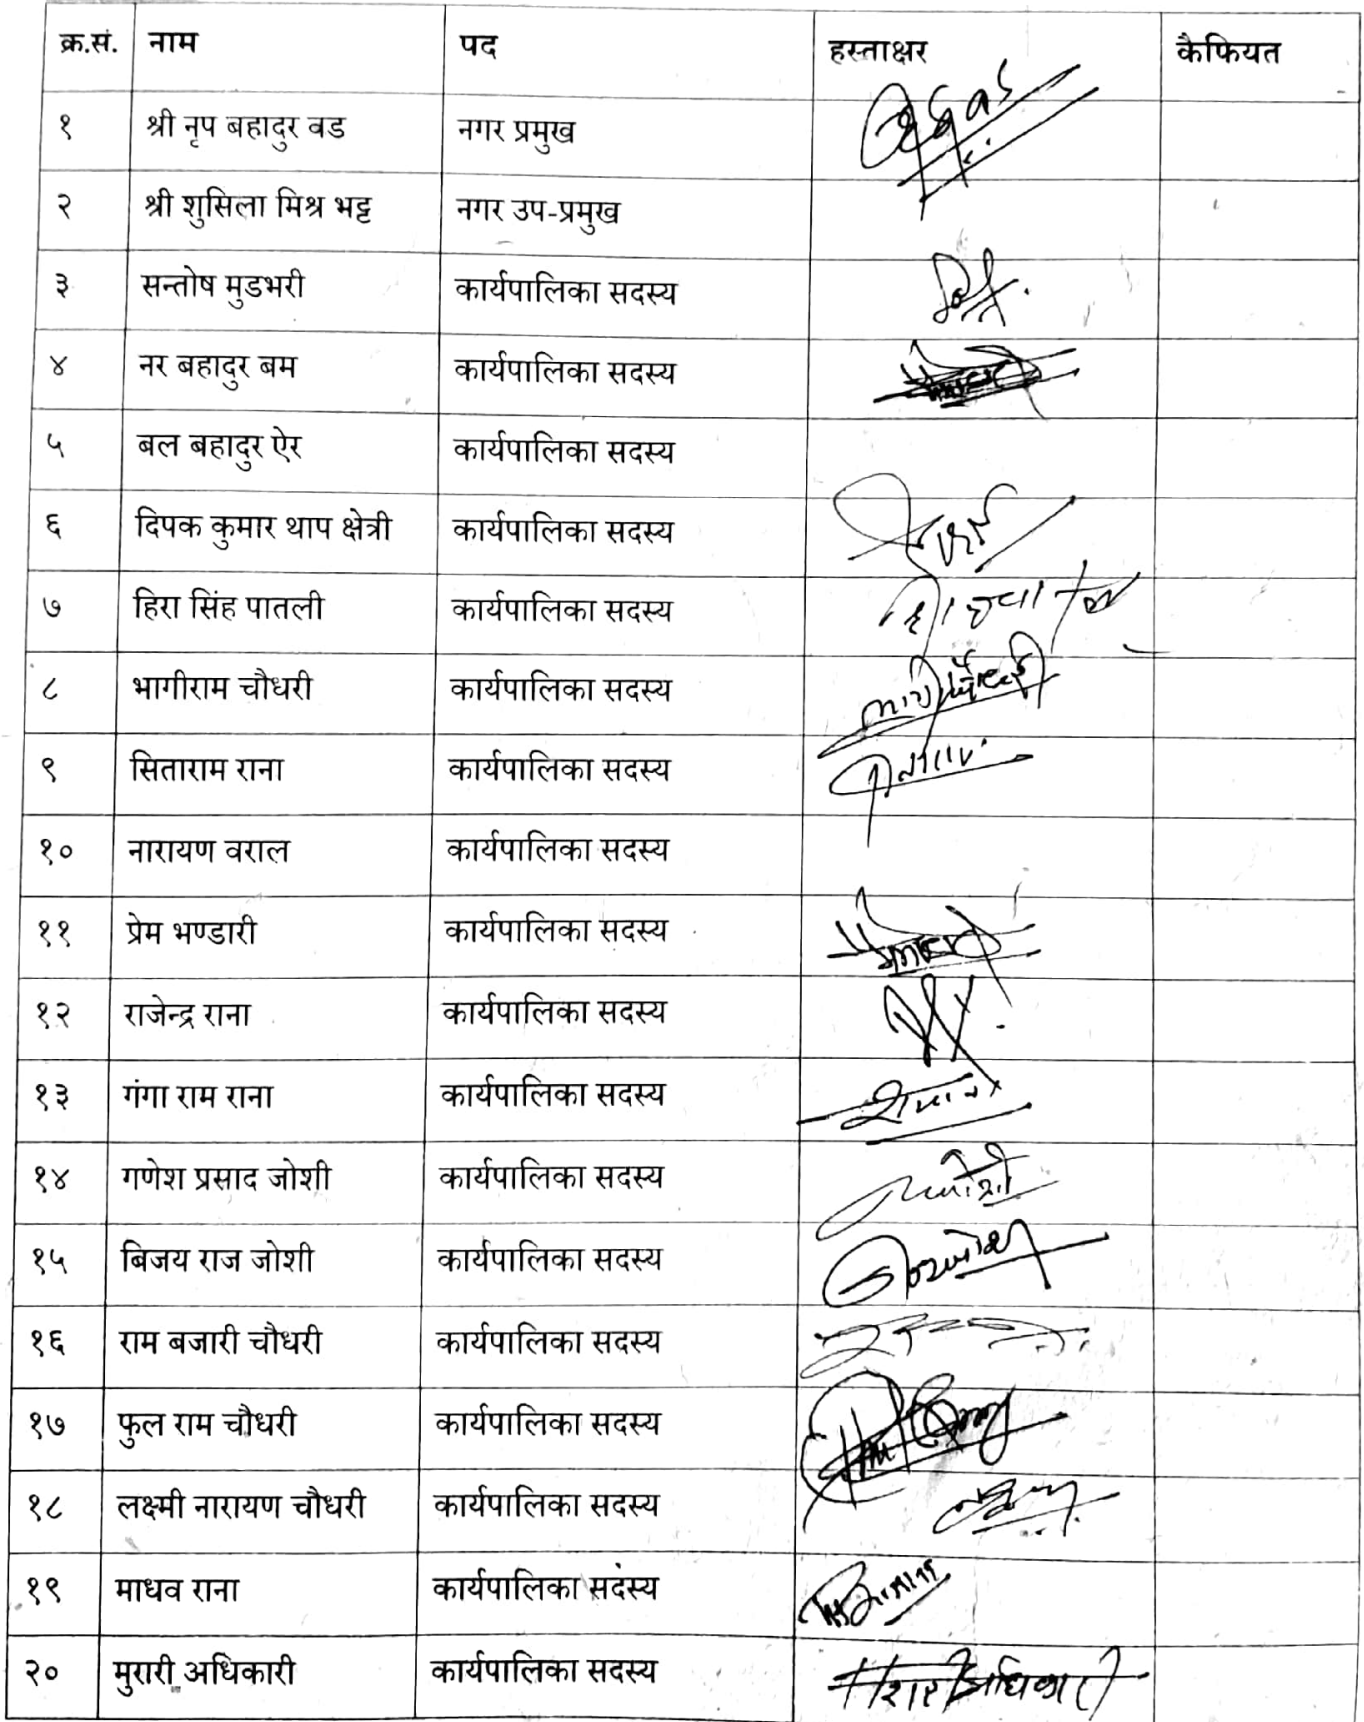 क्र.सं. नाम पद हस्ताक्षर कैफियत
१ श्री नृप बहादुर वड नगर प्रमुख
२ श्री शुसिला मिश्र भट्ट नगर उप-प्रमुख
३ सन्तोष मुडभरी कार्यपालिका सदस्य
४ नर बहादुर बम कार्यपालिका सदस्य
५ बल बहादुर ऐर कार्यपालिका सदस्य
६ दिपक कुमार थाप क्षेत्री कार्यपालिका सदस्य
७ हिरा सिंह पातली कार्यपालिका सदस्य
८ भागीराम चौधरी कार्यपालिका सदस्य
९ सिताराम राना कार्यपालिका सदस्य
१० नारायण वराल कार्यपालिका सदस्य
११ प्रेम भण्डारी कार्यपालिका सदस्य
१२ राजेन्द्र राना कार्यपालिका सदस्य
१३ गंगा राम राना कार्यपालिका सदस्य
१४ गणेश प्रसाद जोशी कार्यपालिका सदस्य
१५ बिजय राज जोशी कार्यपालिका सदस्य
१६ राम बजारी चौधरी कार्यपालिका सदस्य
१७ फुल राम चौधरी कार्यपालिका सदस्य
१८ लक्ष्मी नारायण चौधरी कार्यपालिका सदस्य
१९ माधव राना कार्यपालिका सदस्य
२० मुरारी अधिकारी कार्यपालिका सदस्य